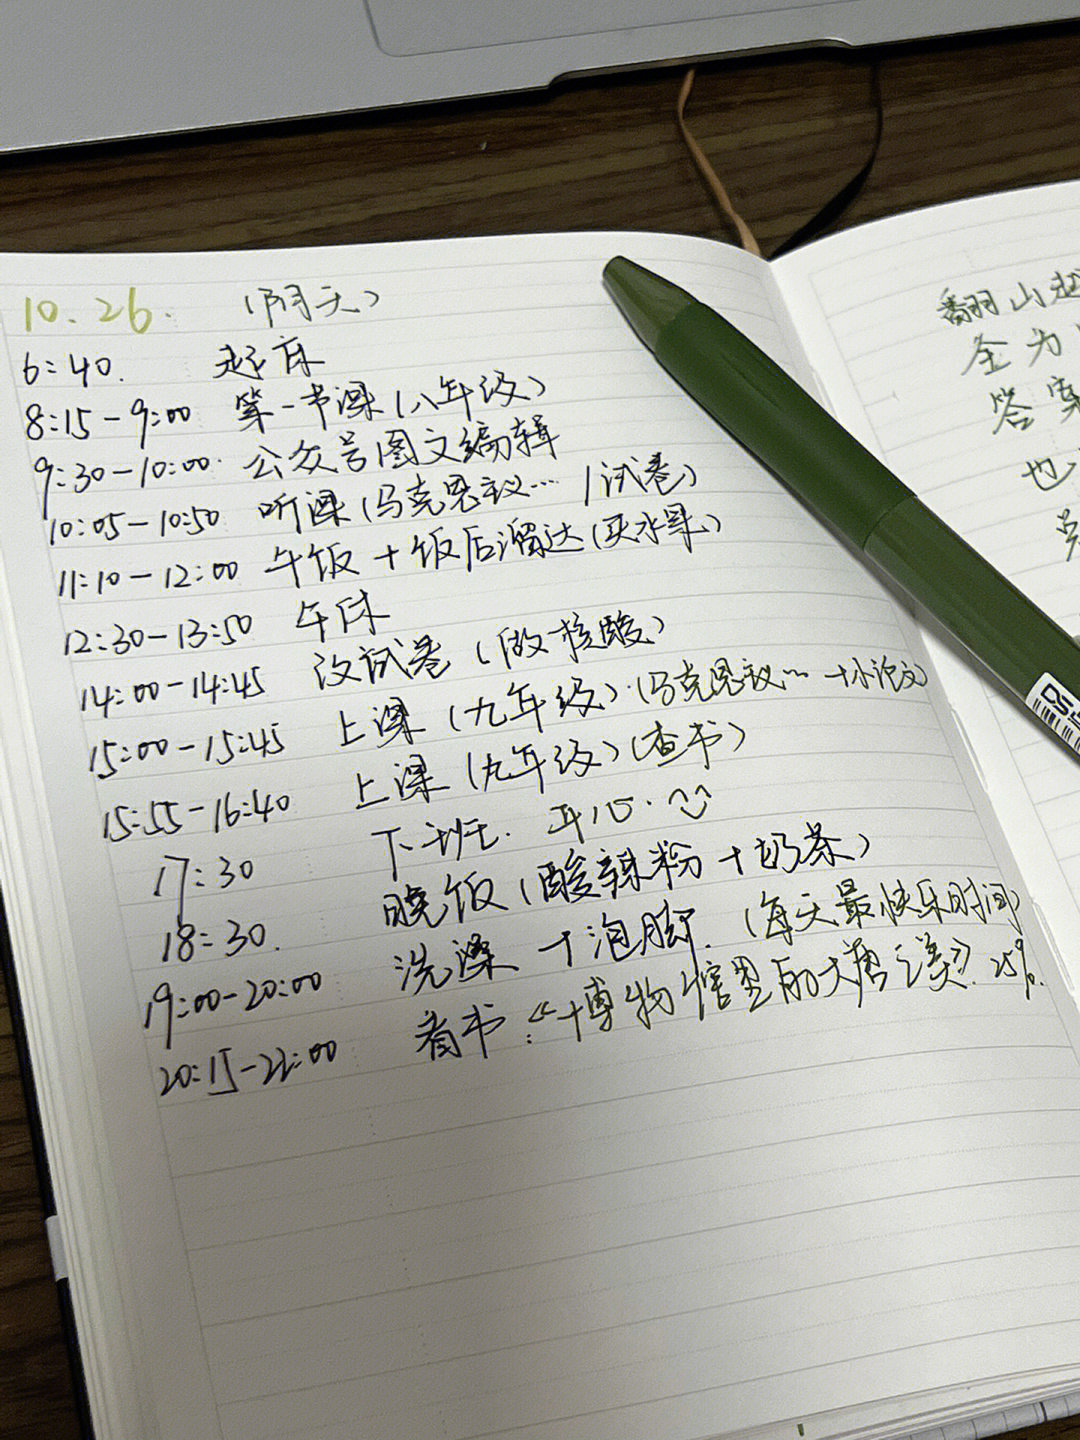 10.26. (阴天)
6:40. 起床
8:15-9:00 第一节课(八年级)
9:30-10:00. 公众号图文编辑
10:05-10:50 听课(马克思主义… /试卷)
11:10-12:00 午饭+饭后溜达(买水果)
12:30-13:50 午休
14:00-14:45 改试卷(做核酸)
15:00-15:45 上课(九年级)(马克思主义…+小论文)
15:55-16:40 上课(九年级)(查书)
17:30 下班. 开心.
18:30. 晚饭(酸辣粉+奶茶)
19:00-20:00 洗澡+泡脚.(每天最快乐时间)
20:15-22:00 看书:《博物馆里的大唐之美》25%.
翻山越
全为
答案
也
DS